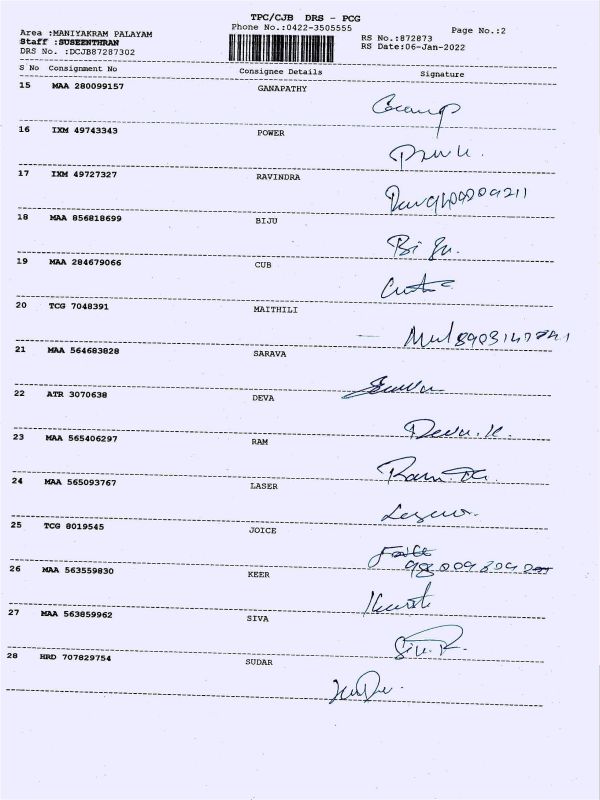 TPC/CJB DRS - PCG
Area :MANIYAKRAM PALAYAM Phone No.:0422-3505555 Page No.:2
Staff :SUSEENTHRAN RS No.:872873
DRS No. :DCJB87287302 RS Date:06-Jan-2022
S No Consignment No Consignee Details Signature
15 MAA 280099157 GANAPATHY
16 IXM 49743343 POWER
17 IXM 49727327 RAVINDRA
18 MAA 856818699 BIJU
Biju.
19 MAA 284679066 CUB
20 TCG 7048391 MAITHILI
21 MAA 564683828 SARAVA
22 ATR 3070638 DEVA
Deva. K.
23 MAA 565406297 RAM
24 MAA 565093767 LASER
25 TCG 8019545 JOICE
26 MAA 563559830 KEER
27 MAA 563859962 SIVA
28 HRD 707829754 SUDAR